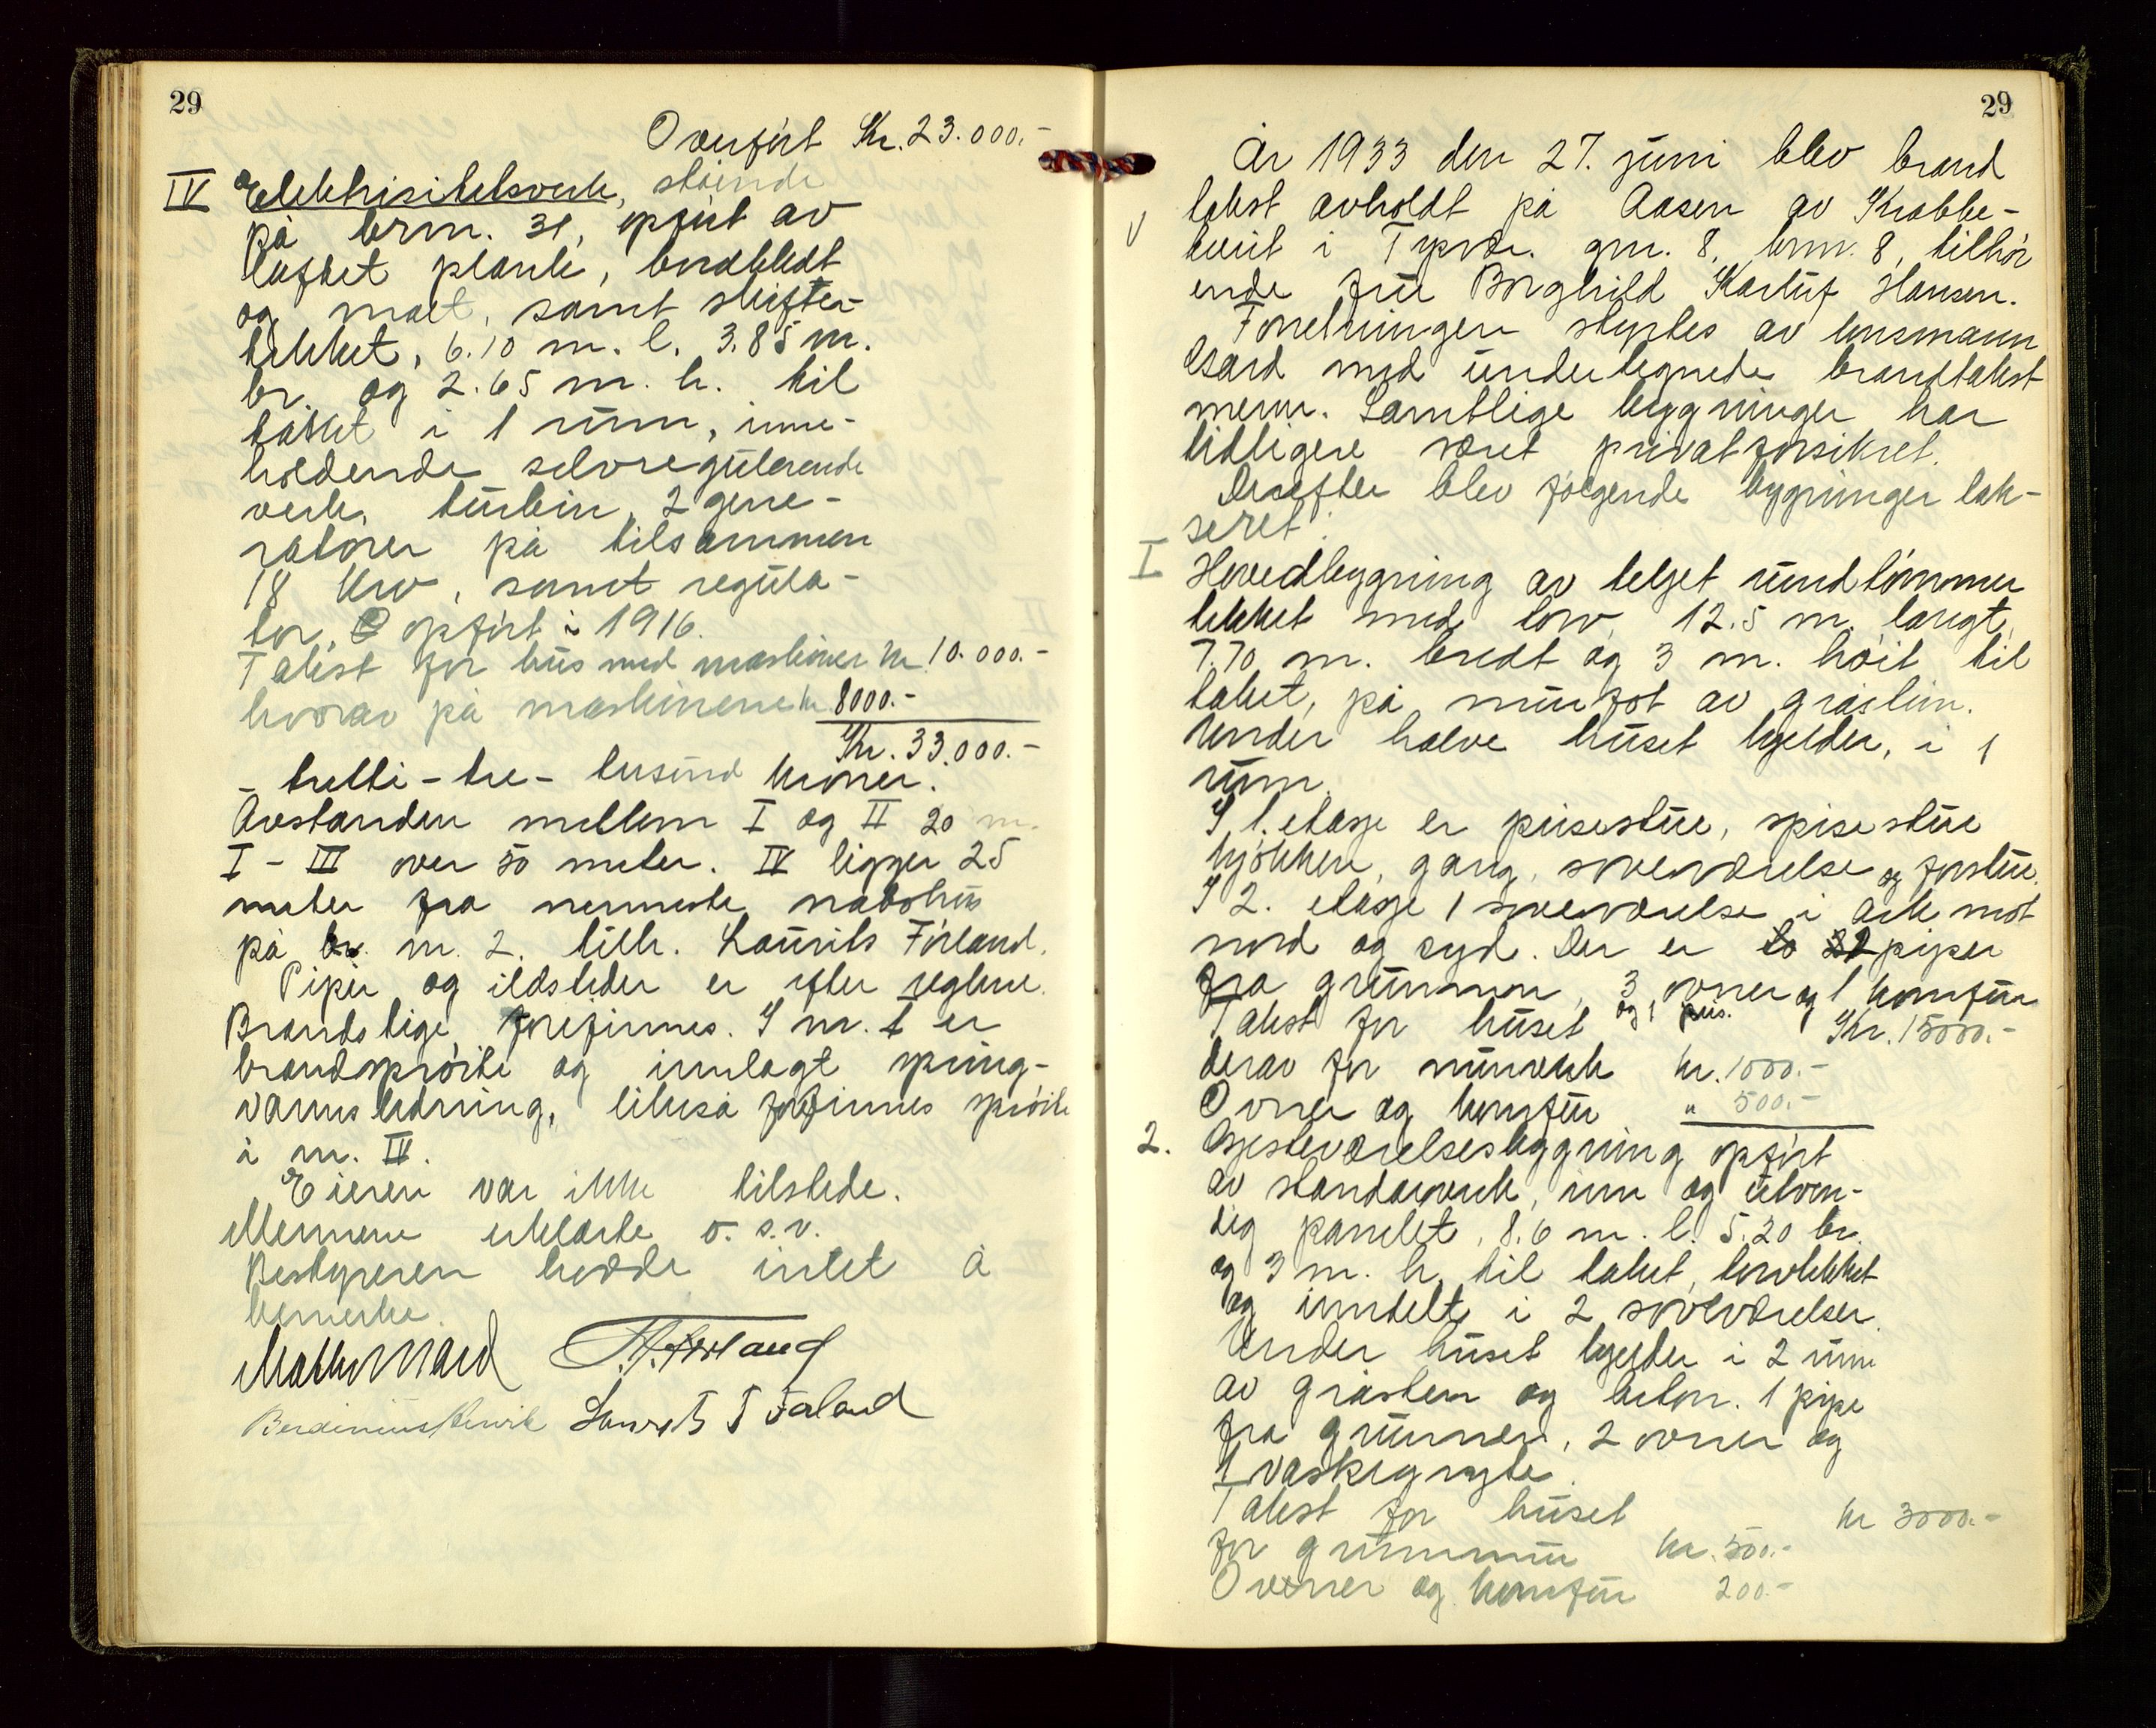 29
Overført Kr. 23.000.-
IV Elektrisitetsverk, stående
på brn. 31, opført av
laftet plank, bordkledt
og malt, samt skifter-
tekket, 6.10 m. l. 3.85 m.
br. og 2.65 m. h. til
taket i 1 rum, inne-
holdende selvregulerende
verk, turbin, 2 gene-
ratorer på tilsammen
18 kw, samt regula-
tor, opført i 1916.
Takst for hus med maskiner kr 10.000.-
hvorav på maskinene kr 8000.-
Kr. 33.000.-
- tretti-tre- tusund kroner.
Avstanden mellem I og II 20 m.
I - III over 50 meter. IV ligger 25
meter fra nermeste nabohus
på br. nr. 2. tilh. Laurits Førland.
Piper og ildsteder er efter reglene.
Brandstige forefinnes. I nr. I er
brandsprøite og innlagt spring-
vannsledning, likeså forefinnes sprøite
i nr. IV.
Eieren var ikke tilstede.
Mennene erklærte o. s. v.
Bestyreren hadde intet å
bemerke.
29
År 1933 den 27. juni blev brand
takst avholdt på Aasen av Krabbe-
tveit i Tysvær. gnr. 8, brnr. 8, tilhør
ende fru Borghild Karluf Hansen.
Forretningen styrtes av lensmann
Aasrd med undertegnede brandtakst
menn. Samtlige bygninger har
tidligere været privatforsikret.
Derefter blev følgende bygninger tak-
seret:
I Hovedbygning av telget rundtømmer
tekket med torv, 12.5 m. langt,
7.70 m. bredt og 3 m. høit til
taket, på murfot av gråstein.
Under halve huset kjelder, i 1
rum.
I 1. etasje er peisestue, spisestue
kjøkken, gang, soveværelse og forstue.
I 2. etasje 1 soveværelse i ark mot
nord og syd. Der er to 2 piper
fra grunnen, 3 ovner og 1 komfur
og 1 peis.
Takst for huset Kr. 15000.-
derav for murverk kr. 1000.-
Ovner og komfur " 500.-
2. Gjesteværelsesbygning opført
av standarverk, inn og utven-
dig panelet, 8.6 m. l. 5.20 br.
og 3 m. h. til taket, torvtekket
og inndelt i 2 soveværelser.
Under huset kjelder i 2 rum
av gråsten og beton. 1 pipe
fra grunnen, 2 ovner og
1 vaskegryte.
Takst for huset kr 3000.-
for grunnmur kr. 500.-
Ovener og komfur 200.-